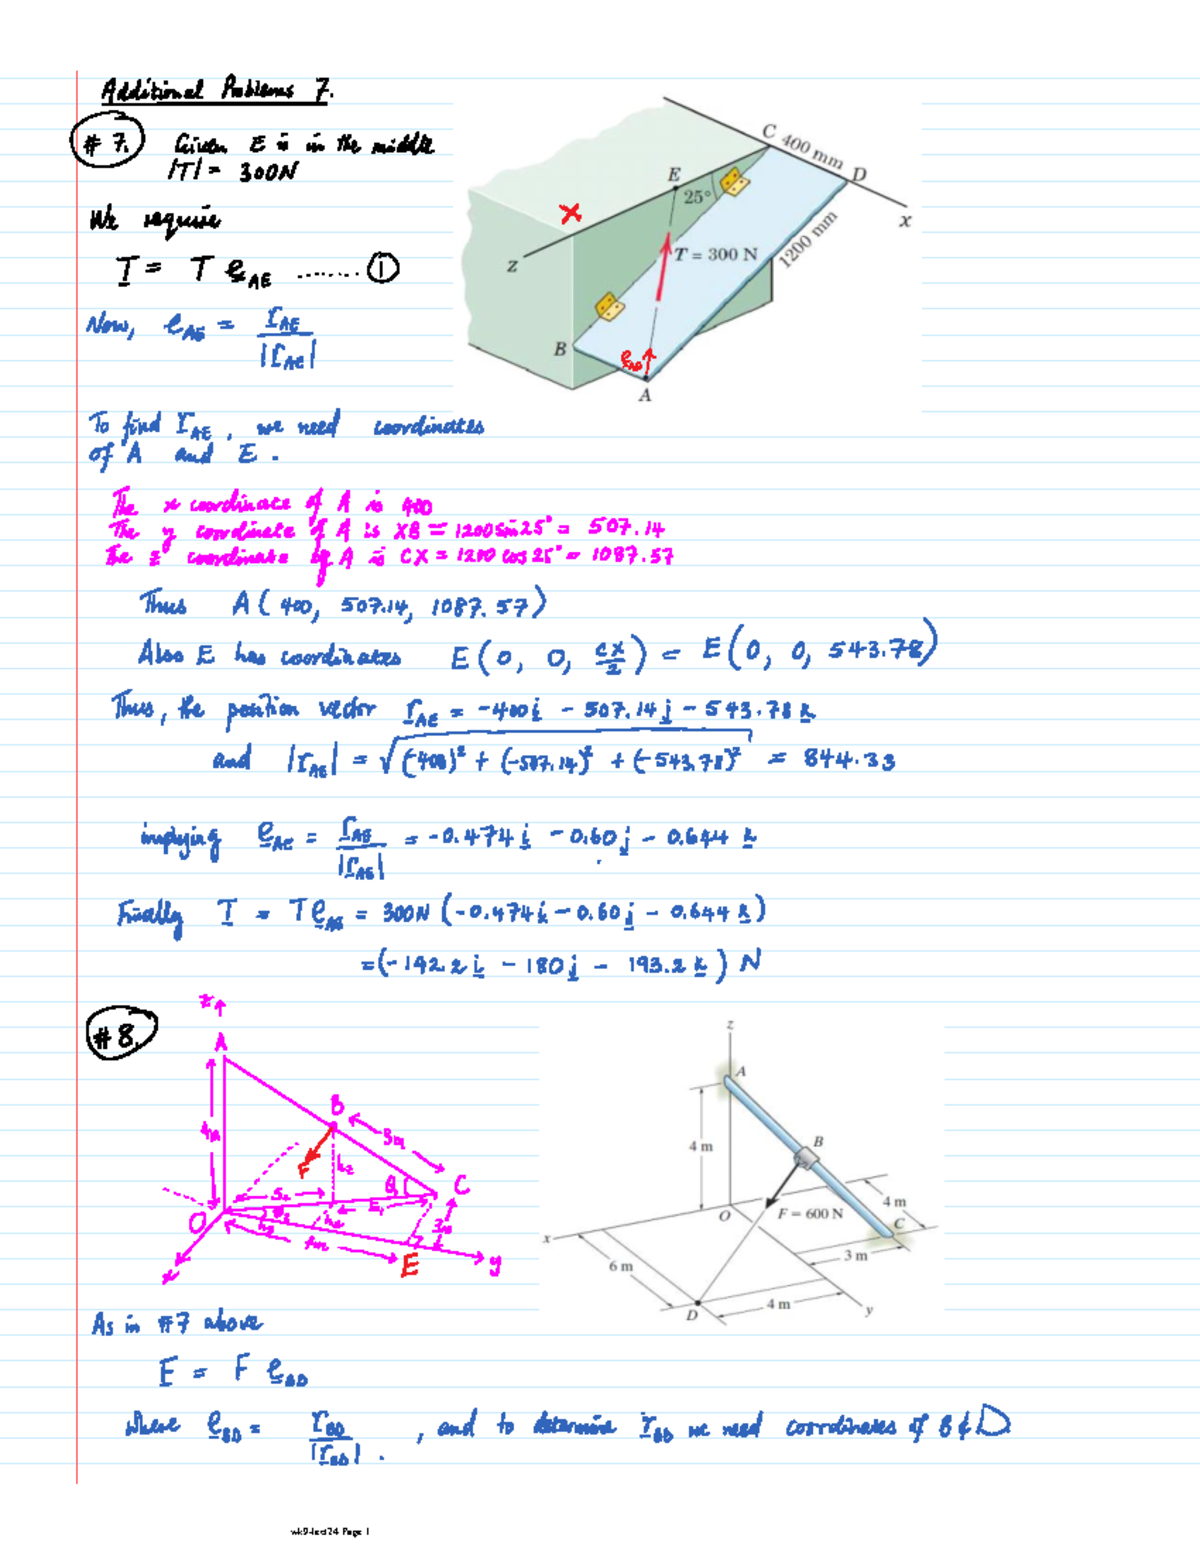 Additional Problems 7.
# 7. Given E is in the middle
|T| = 300N
We require
T = T e_AE ........ ①
Now, e_AE = r_AE / |r_AE|
C 400 mm D
E
25°
x
X
z
T = 300 N
1200 mm
B
A
To find r_AE, we need coordinates
of A and E.
The x coordinate of A is 400
The y coordinate of A is XB = 1200 sin 25° = 507.14
The z coordinate of A is CX = 1200 cos 25° = 1087.57
Thus A (400, 507.14, 1087.57)
Also E has coordinates E (0, 0, CX/2) = E (0, 0, 543.78)
Thus, the position vector r_AE = -400 i - 507.14 j - 543.78 k
and |r_AE| = √(-400)² + (-507.14)² + (-543.78)² = 844.33
implying e_AE = r_AE / |r_AE| = -0.474 i - 0.60 j - 0.644 k
Finally T = T e_AE = 300N (-0.474 i - 0.60 j - 0.644 k)
= (-142.2 i - 180 j - 193.2 k) N
# 8.
z
A
B
3m
4m
F
h₂
θ
C
O
4m
E
x
y
z
A
B
4 m
4 m
O
F = 600 N
C
x
3 m
6 m
4 m
D
y
As in #7 above
F = F e_BD
where e_BD = r_BD / |r_BD| . , and to determine r_BD we need coordinates of B & D
wk9-lect24 Page 1